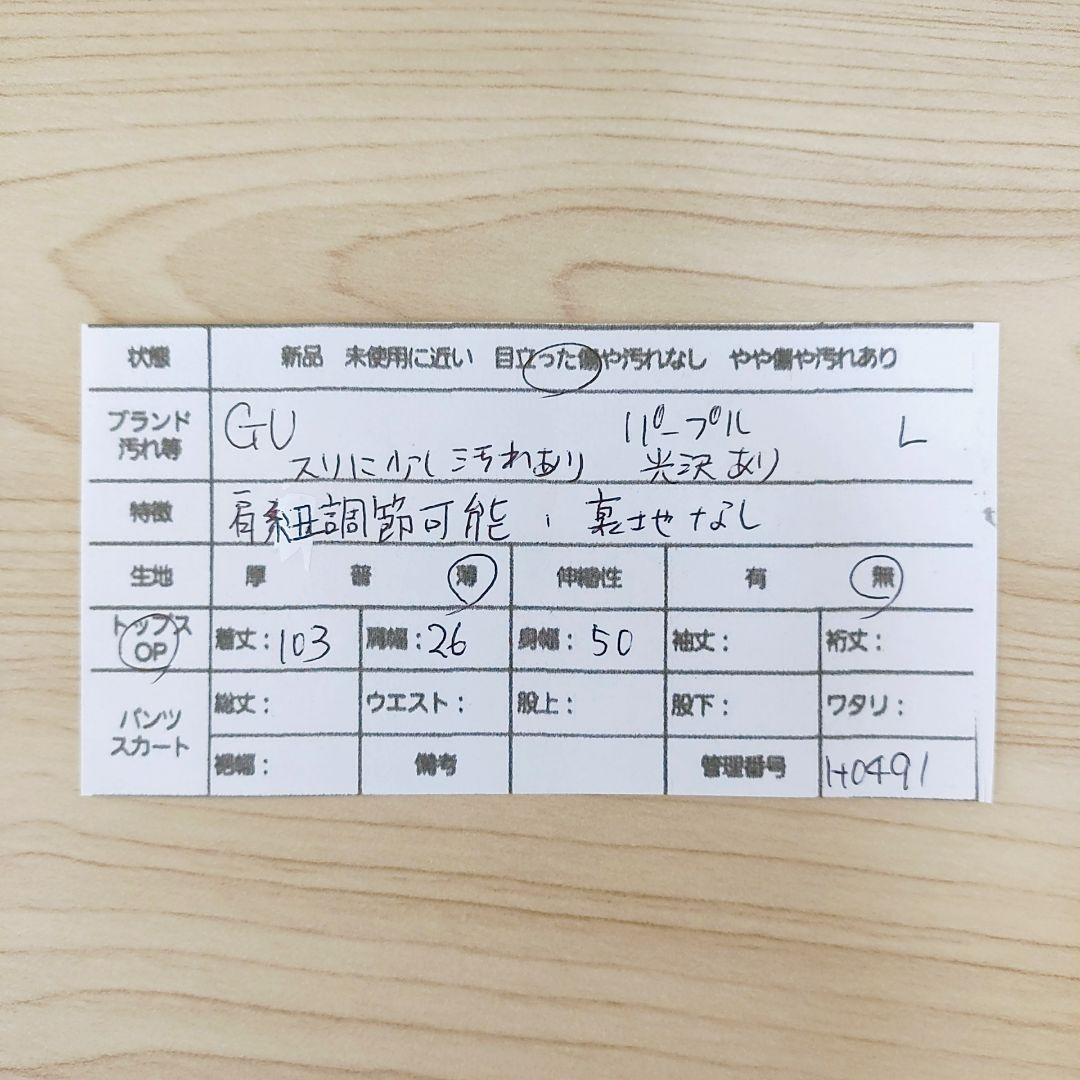 状態 新品 未使用に近い 目立った傷や汚れなし やや傷や汚れあり
ブランド 汚れ等 GU パープル L
スリに少し汚れあり 光沢あり
特徴 肩紐調節可能、裏地なし
生地 厚 普 薄 伸縮性 有 無
トップス OP 着丈:103 肩幅:26 身幅:50 袖丈: 裄丈:
パンツ スカート 総丈: ウエスト: 股上: 股下: ワタリ:
裾幅: 備考 管理番号 H0491